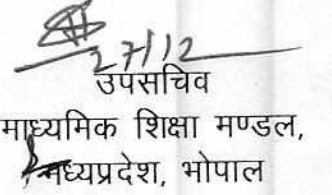 27/12
उपसचिव
माध्यमिक शिक्षा मण्डल,
मध्यप्रदेश, भोपाल